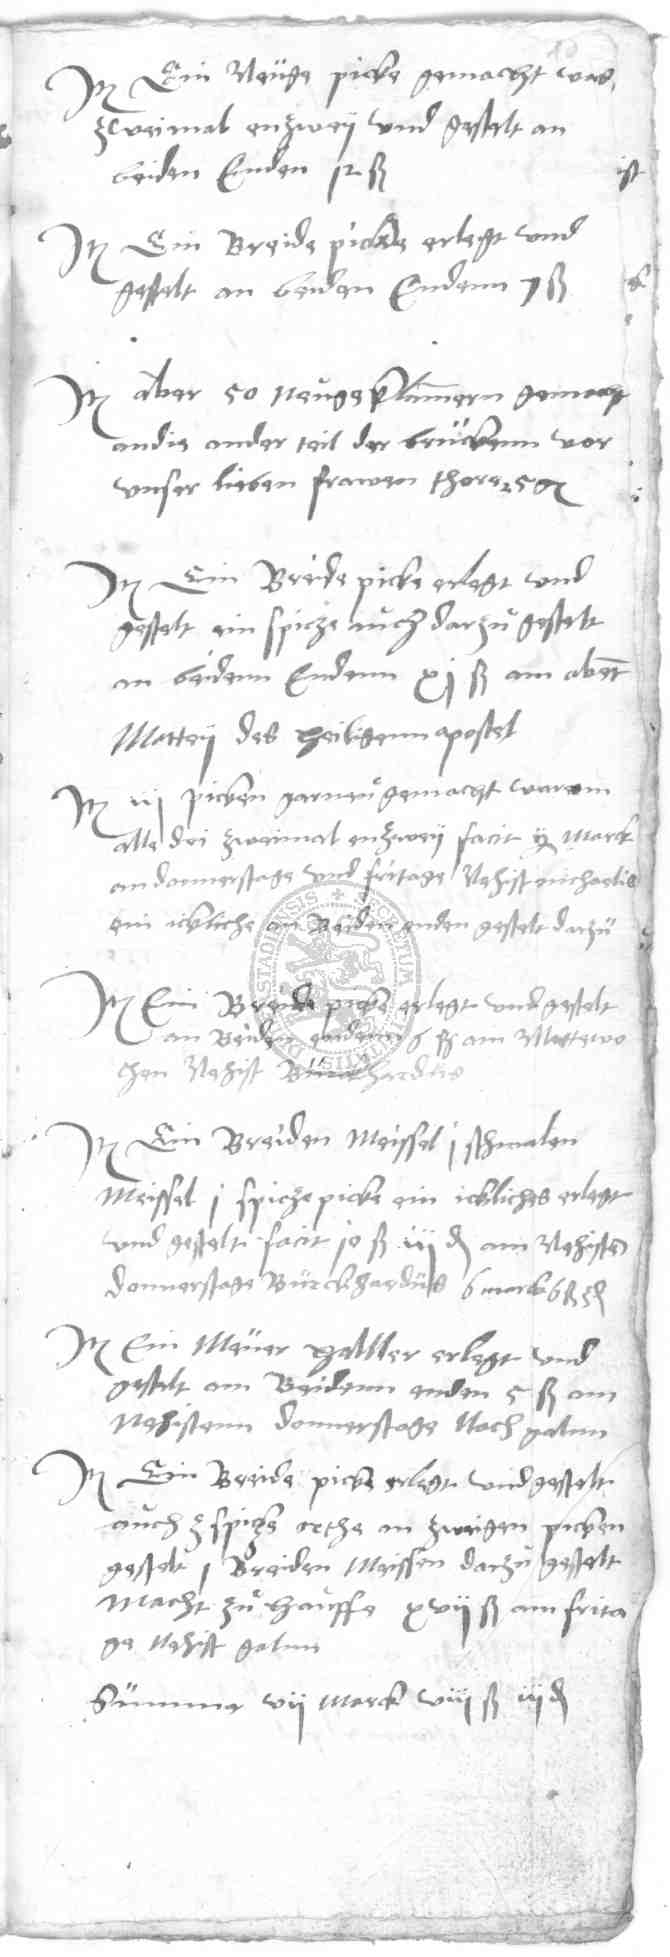 Itm Ein Neuge picke gemacht was
zweimal enzweij und gestelt an
beiden Enden 12 ß
Itm Ein Breide picke erlegt und
gestelt an beiden Endenn 7 ß
Itm aber 50 neuge klamern gemacht
an die ander teil der brückenn vor
unser lieben frawen thore 50
Itm Ein Breide picke erlegt und
gestelt ein spicze auch darzu gestelt
an beidenn Endenn xj ß am abet
Mattej des heiligenn apostel
Itm iij picken garneu gemacht warenn
alle drei zweimal enzweij facit ij Marck
an donnerstage und fritage Nehist michaelis
ein ickliche an Beiden enden gestelt darzu
Itm Ein Breide picke erlegt und gestelt
an Beiden endenn 6 ß am Mittewo
chen Nehist Burckhardus
Itm Ein Breiden Meissel j schmalen
Meissel j spicze picke ein ickliches erlegt
und gestelt facit 10 ß iiij d am Nehisten
donnerstage Burckhardus 6 marck 6 ß 3 d
Itm Ein Meuer hamer erlegt und
gestelt am Beidenn enden 5 ß am
Nehistenn donnerstage Nach galum
Itm Ein Breide picke erlegt und gestelt
auch 3 spicze orthe an zweigen picken
gestelt j Breiden Meissen darzu gestelt
Macht zu hauffe xvij ß am frita
ge Nehist galum
Summa vij Marck viij ß iij d